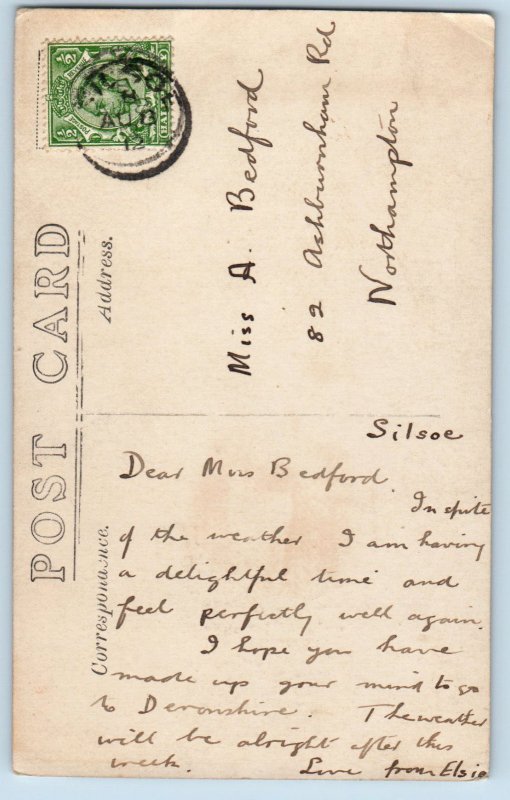 POST CARD
Address.
Correspondence.
Miss A. Bedford
82 Ashburnham Rd
Northampton
Silsoe
Dear Miss Bedford.
In spite
of the weather I am having
a delightful time and
feel perfectly well again.
I hope you have
made up your mind to go
to Devonshire. The weather
will be alright after this
week. Love from Elsie